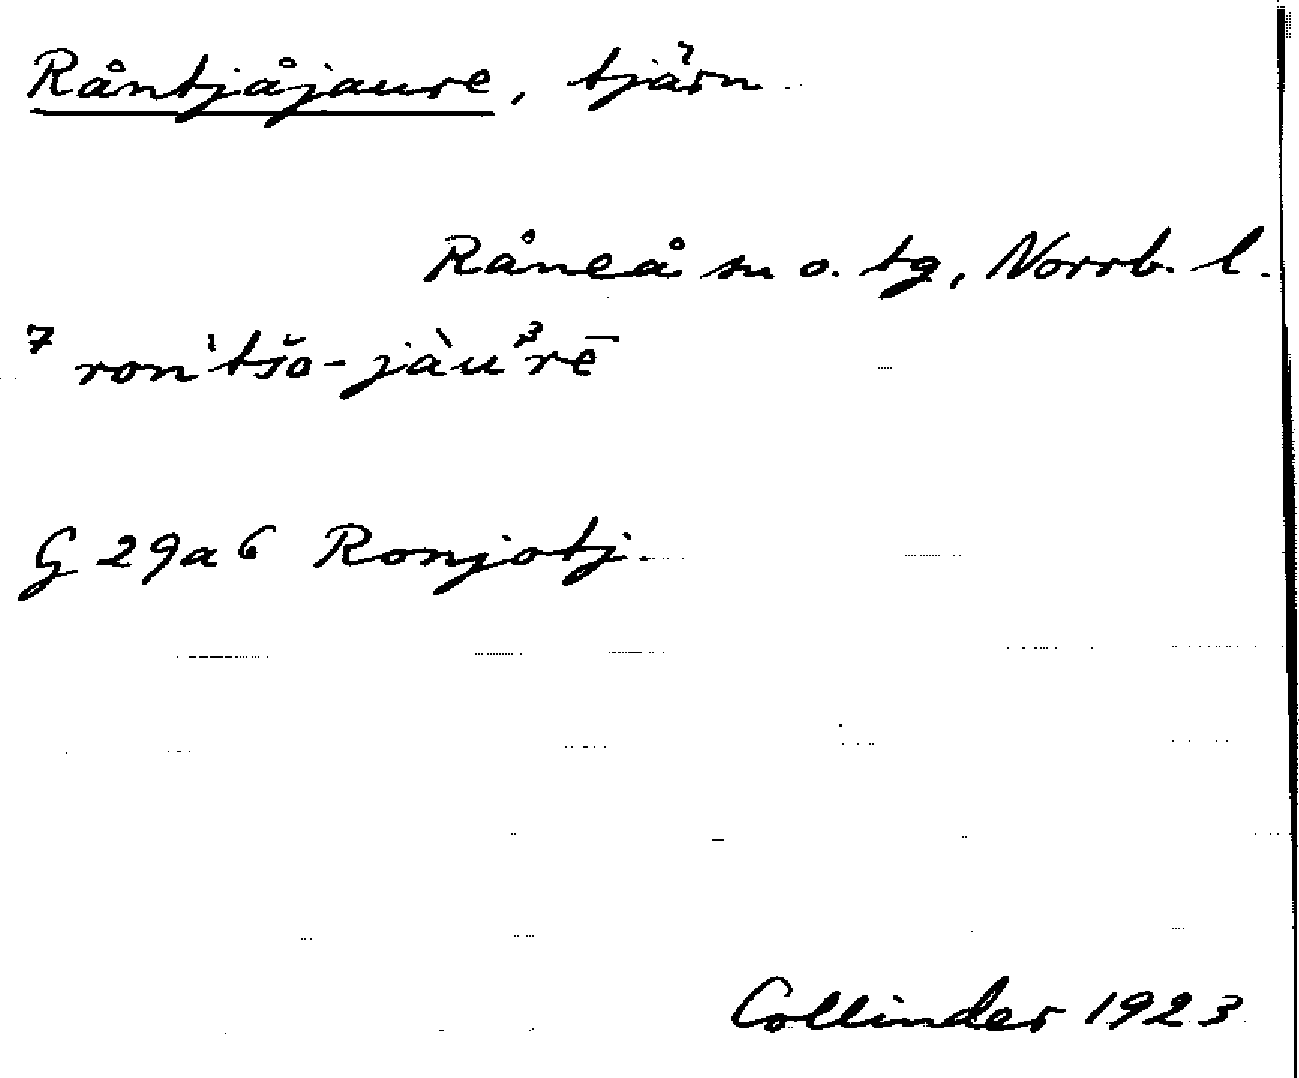 Råntjåjaure, tjärn
Råneå sn o. tg, Norrb. l.
7 ron'tšo-jàuᵝrē
G 29a6 Ronjotj.
Collinder 1923